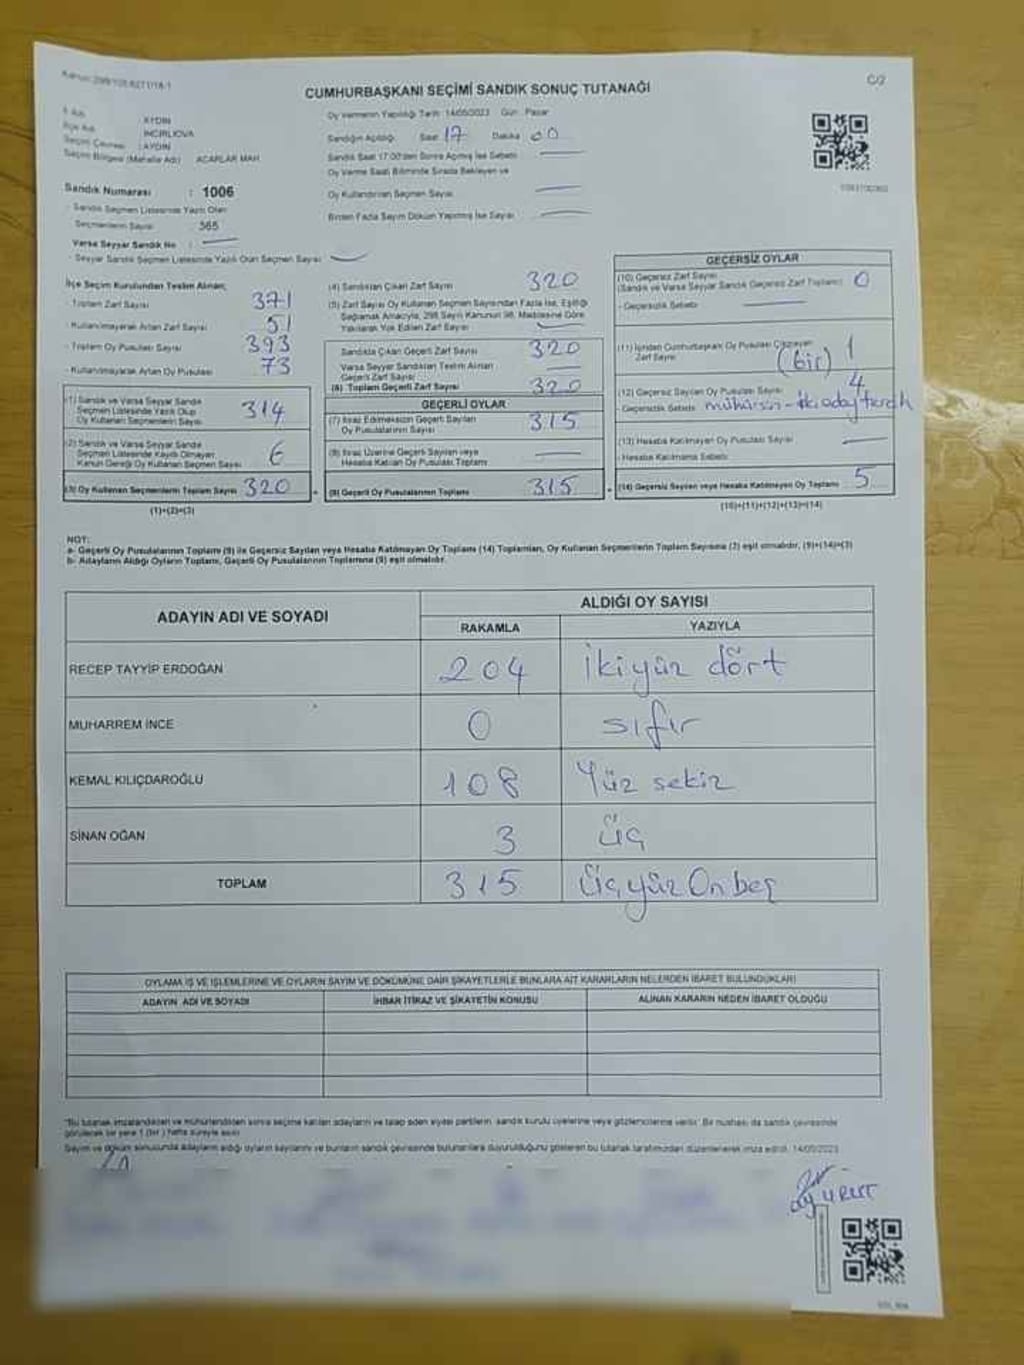 C/2
CUMHURBAŞKANI SEÇİMİ SANDIK SONUÇ TUTANAĞI
İl Adı AYDIN
İlçe Adı İNCİRLİOVA
Seçim Çevresi : AYDIN
Seçim Bölgesi (Mahalle Adı) ACARLAR MAH.
Sandık Numarası : 1006
Sandık Seçmen Listesinde Yazılı Olan
Seçmenlerin Sayısı 365
Varsa Seyyar Sandık No :
- Seyyar Sandık Seçmen Listesinde Yazılı Olan Seçmen Sayısı
Oy Vermenin Yapıldığı Tarih: 14/05/2023 Gün : Pazar
Sandığın Açıldığı Saat 17 Dakika 00
Sandık Saat 17:00'den Sonra Açılmış İse Sebebi
Oy Verme Saati Bitiminde Sırada Bekleyen ve
Oy Kullandırılan Seçmen Sayısı
Birden Fazla Sayım Döküm Yapılmış İse Sayısı
İlçe Seçim Kurulundan Teslim Alınan;
- Toplam Zarf Sayısı 371
- Kullanılmayarak Artan Zarf Sayısı 51
- Toplam Oy Pusulası Sayısı 393
- Kullanılmayarak Artan Oy Pusulası 73
(1) Sandık ve Varsa Seyyar Sandık
Seçmen Listesinde Yazılı Olup
Oy Kullanan Seçmenlerin Sayısı 314
(2) Sandık ve Varsa Seyyar Sandık
Seçmen Listesinde Kayıtlı Olmayan
Kanun Gereği Oy Kullanan Seçmen Sayısı 6
(3) Oy Kullanan Seçmenlerin Toplam Sayısı 320
(1)+(2)=(3)
(4) Sandıktan Çıkan Zarf Sayısı 320
(5) Zarf Sayısı Oy Kullanan Seçmen Sayısından Fazla İse, Eşitliği
Sağlamak Amacıyla, 298 Sayılı Kanunun 98. Maddesine Göre
Yakılarak Yok Edilen Zarf Sayısı
Sandıkta Çıkan Geçerli Zarf Sayısı 320
Varsa Seyyar Sandıktan Teslim Alınan
Geçerli Zarf Sayısı
(6) Toplam Geçerli Zarf Sayısı 320
GEÇERLİ OYLAR
(7) İtiraz Edilmeksizin Geçerli Sayılan
Oy Pusulalarının Sayısı 315
(8) İtiraz Üzerine Geçerli Sayılan veya
Hesaba Katılan Oy Pusulası Toplamı
(9) Geçerli Oy Pusulalarının Toplamı 315
GEÇERSİZ OYLAR
(10) Geçersiz Zarf Sayısı
(Sandık ve Varsa Seyyar Sandık Geçersiz Zarf Toplamı) 0
- Geçersizlik Sebebi:
(11) İçinden Cumhurbaşkanı Oy Pusulası Çıkmayan
Zarf Sayısı (bir) 1
(12) Geçersiz Sayılan Oy Pusulası Sayısı 4
- Geçersizlik Sebebi mühürsüz - iki aday tercih
(13) Hesaba Katılmayan Oy Pusulası Sayısı
- Hesaba Katılmama Sebebi
(14) Geçersiz Sayılan veya Hesaba Katılmayan Oy Toplamı 5
(10)+(11)+(12)+(13)=(14)
NOT:
a- Geçerli Oy Pusulalarının Toplamı (9) ile Geçersiz Sayılan veya Hesaba Katılmayan Oy Toplamı (14) Toplamları, Oy Kullanan Seçmenlerin Toplam Sayısına (3) eşit olmalıdır. (9)+(14)=(3)
b- Adayların Aldığı Oyların Toplamı, Geçerli Oy Pusulalarının Toplamına (9) eşit olmalıdır.
ADAYIN ADI VE SOYADI
ALDIĞI OY SAYISI
RAKAMLA YAZIYLA
RECEP TAYYİP ERDOĞAN 204 ikiyüz dört
MUHARREM İNCE 0 sıfır
KEMAL KILIÇDAROĞLU 108 Yüz sekiz
SİNAN OĞAN 3 üç
TOPLAM 315 Üçyüz On beş
OYLAMA İŞ VE İŞLEMLERİNE VE OYLARIN SAYIM VE DÖKÜMÜNE DAİR ŞİKAYETLERLE BUNLARA AİT KARARLARIN NELERDEN İBARET BULUNDUKLARI
ADAYIN ADI VE SOYADI İHBAR İTİRAZ VE ŞİKAYETİN KONUSU ALINAN KARARIN NEDEN İBARET OLDUĞU
"Bu tutanak imzalandıktan ve mühürlendikten sonra seçime katılan adayların ve talep eden siyasi partilerin sandık kurulu üyelerine veya gözlemcilerine verilir". Bir nüshası da sandık çevresinde
görülecek bir yere 1 (bir) hafta süreyle asılır.
Sayım ve döküm sonucunda adayların aldığı oyların sayılarını ve bunların sandık çevresinde bulunanlara duyurulduğunu gösteren bu tutanak tarafımızdan düzenlenerek imza edildi. 14/05/2023